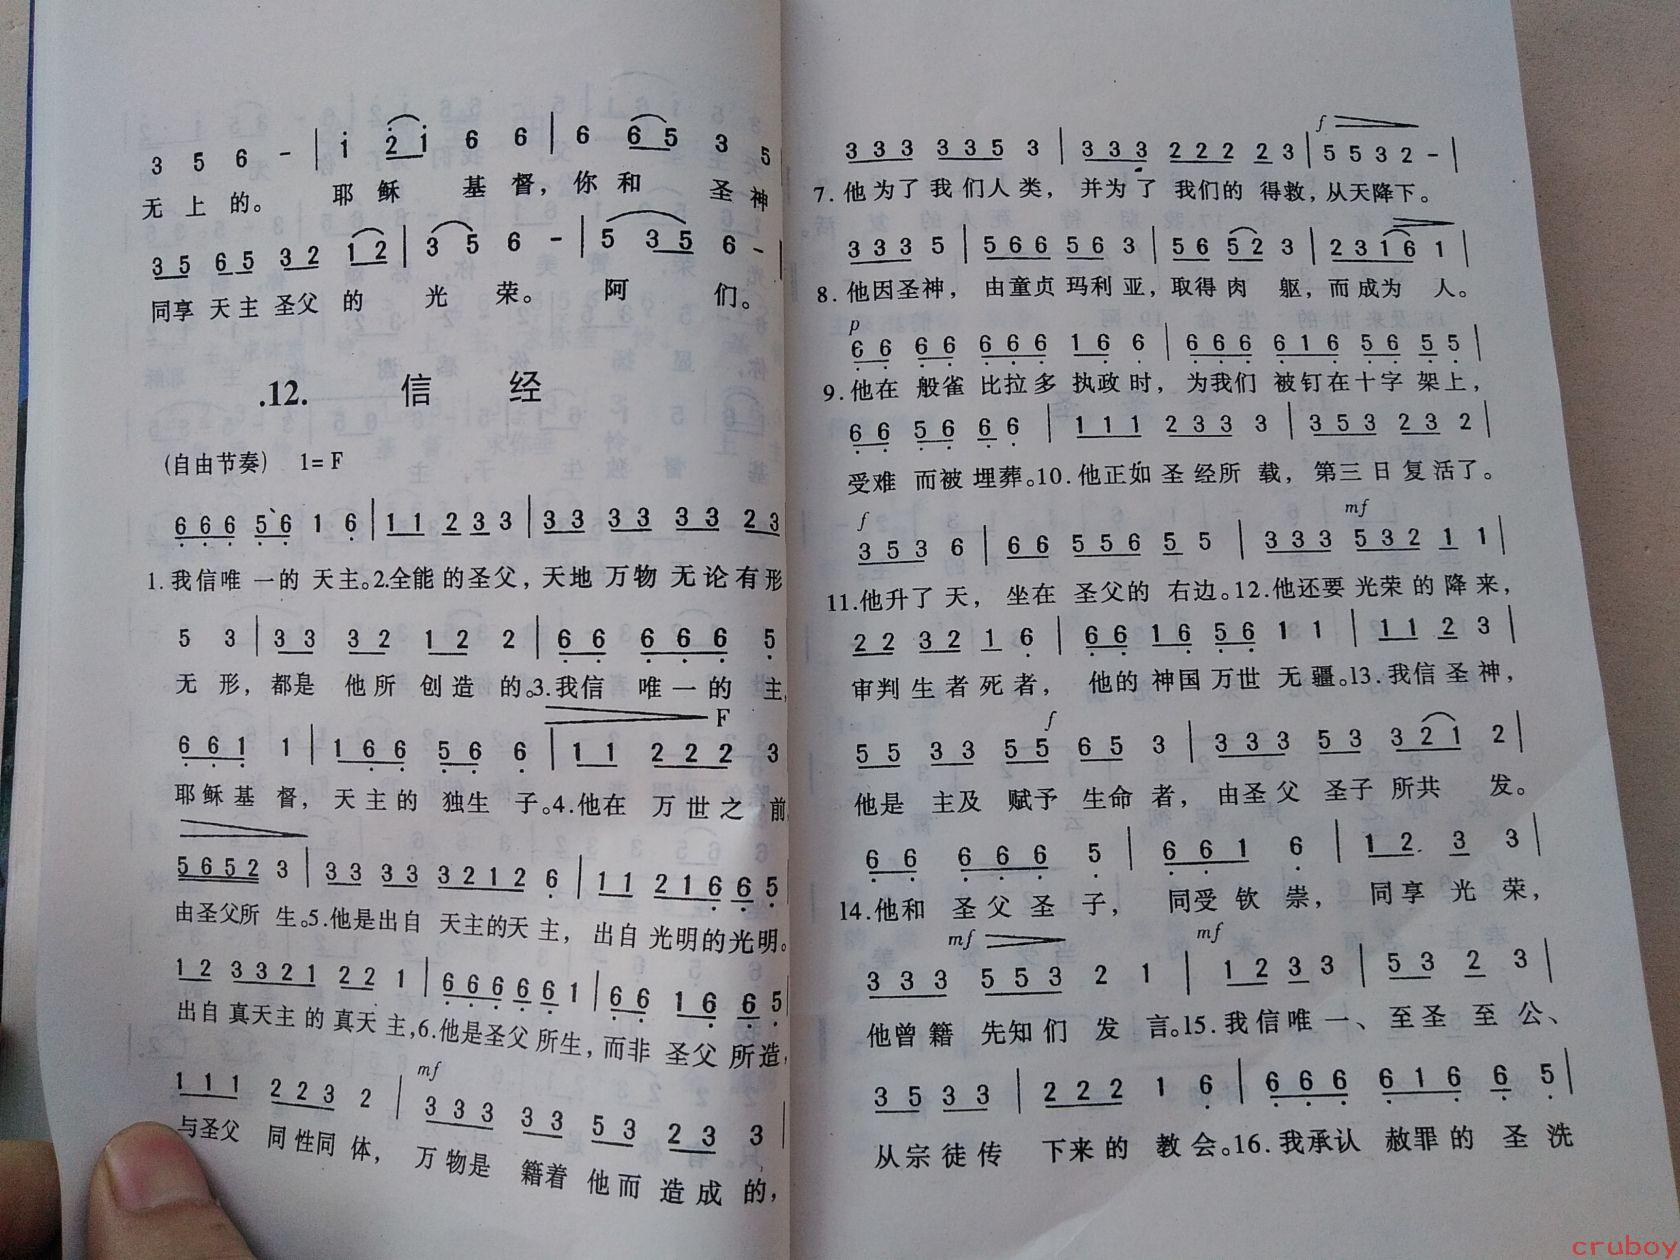 3 5 6 - | i 2 i 6 6 | 6 6 5 3 5
无上的。 耶稣 基督，你和 圣神
3 5 6 5 3 2 1 2 | 3 5 6 - | 5 3 5 6 - |
同享天主圣父的 光 荣。 阿 们。
.12. 信 经
(自由节奏) 1=F
6 6 6 5 6 1 6 | 1 1 2 3 3 | 3 3 3 3 3 3 2 3
1.我信唯一的天主。2.全能的圣父，天地万物无论有形
5 3 | 3 3 3 2 1 2 2 | 6 6 6 6 6 5
无形，都是他所创造的。3.我信唯一的主，
F
6 6 1 1 | 1 6 6 5 6 6 | 1 1 2 2 2 3
耶稣基督，天主的独生子。4.他在万世之前
5 6 5 2 3 | 3 3 3 3 3 2 1 2 6 | 1 1 2 1 6 6 5
由圣父所生。5.他是出自天主的天主，出自光明的光明。
1 2 3 3 2 1 2 2 1 | 6 6 6 6 6 1 | 6 6 1 6 6 5
出自真天主的真天主，6.他是圣父所生，而非圣父所造，
mf
1 1 1 2 2 3 2 | 3 3 3 3 3 5 3 2 3 3 |
与圣父同性同体，万物是籍着他而造成的，
f
3 3 3 3 3 5 3 | 3 3 3 2 2 2 2 3 | 5 5 3 2 - |
7.他为了我们人类，并为了我们的得救，从天降下。
3 3 3 5 | 5 6 6 5 6 3 | 5 6 5 2 3 | 2 3 1 6 1 |
8.他因圣神，由童贞玛利亚，取得肉躯，而成为人。
p
6 6 6 6 6 6 6 1 6 6 | 6 6 6 6 1 6 5 6 5 5 |
9.他在般雀比拉多执政时，为我们被钉在十字架上，
6 6 5 6 6 6 | 1 1 1 2 3 3 3 | 3 5 3 2 3 2 |
受难而被埋葬。10.他正如圣经所载，第三日复活了。
f mf
3 5 3 6 | 6 6 5 5 6 5 5 | 3 3 3 5 3 2 1 1 |
11.他升了天，坐在圣父的右边。12.他还要光荣的降来，
2 2 3 2 1 6 | 6 6 1 6 5 6 1 1 | 1 1 2 3 |
审判生者死者，他的神国万世无疆。13.我信圣神，
f
5 5 3 3 5 5 6 5 3 | 3 3 3 5 3 3 2 1 2 |
他是主及赋予生命者，由圣父圣子所共发。
6 6 6 6 6 5 | 6 6 1 6 | 1 2 3 3 |
14.他和圣父圣子，同受钦崇，同享光荣，
mf mf
3 3 3 5 5 3 2 1 | 1 2 3 3 | 5 3 2 3 |
他曾籍先知们发言。15.我信唯一、至圣至公、
3 5 3 3 | 2 2 2 1 6 | 6 6 6 6 1 6 6 5 |
从宗徒传下来的教会。16.我承认赦罪的圣洗
cruboy